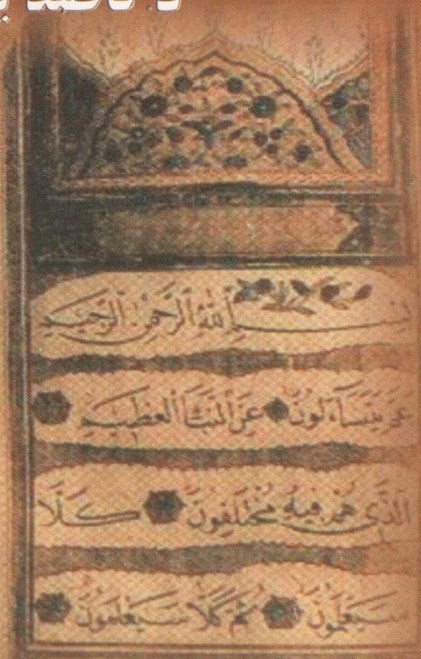 بسم الله الرحمن الرحيم
عم يتساءلون عن النبأ العظيم
الذى هم فيه مختلفون كلا
سيعلمون ثم كلا سيعلمون